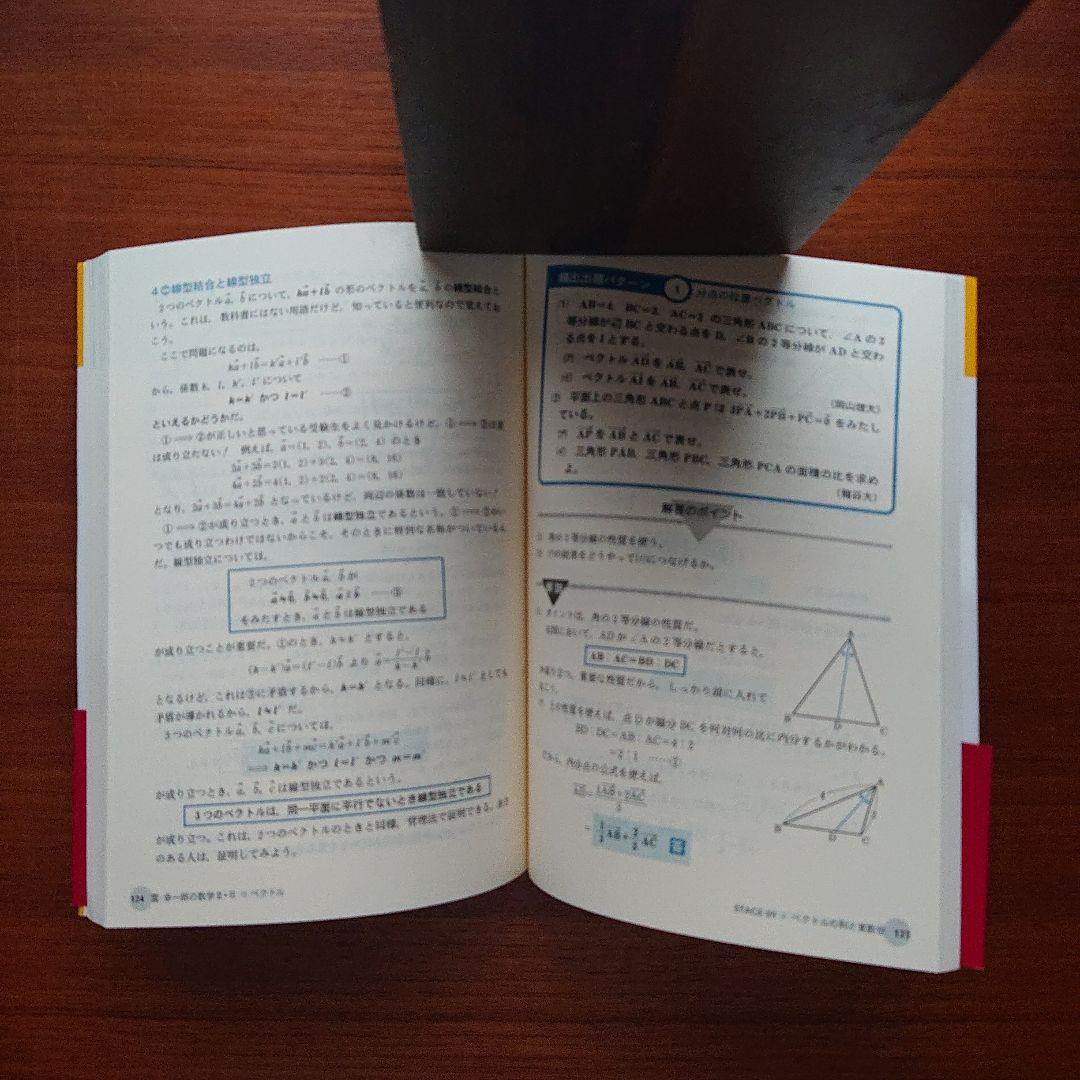 4 線型結合と線型独立
2つのベクトルa, bについて, ka+lb の形のベクトルをa, bの線型結合と
いう。これは, 教科書にはない用語だけど, 知っていると便利なので覚えてお
こう。
ここで問題になるのは,
ka+lb=k'a+l'b ……①
から, 係数k, l, k', l' について
k=k' かつ l=l' ……②
といえるかどうかだ。
①⟹②が正しいと思っている受験生をよく見かけるけど, ①⟹②は実
は成り立たない! 例えば, a=(1, 2), b=(2, 4) のとき
2a+3b=2(1, 2)+3(2, 4)=(8, 16)
4a+2b=4(1, 2)+2(2, 4)=(8, 16)
となり, 2a+3b=4a+2b となっているけど, 両辺の係数は一致していない!
①⟹②が成り立つとき, aとbは線型独立であるという。①⟹②がい
つでも成り立つわけではないからこそ, そのときに特別な名称がついているん
だ。線型独立については,
2つのベクトルa, bが
a≠0, b≠0, a∦b ……③
をみたすとき, aとbは線型独立である
が成り立つことが重要だ。①のとき, k≠k' とすると,
(k-k')a=(l'-l)b より a=(l'-l)/(k-k')b
となるけど, これは③に矛盾するから, k=k' となる。同様に, l≠l' としても
矛盾が導かれるから, l=l' だ。
3つのベクトルa, b, cについては,
ka+lb+mc=k'a+l'b+m'c
⟹ k=k' かつ l=l' かつ m=m'
が成り立つとき, a, b, cは線型独立であるという。
3つのベクトルは, 同一平面に平行でないとき線型独立である
が成り立つ。これは, 2つのベクトルのときと同様, 背理法で証明できる。
のある人は, 証明してみよう。
124 幸一郎の数学 ベクトル
頻出出題パターン 1 分点の位置ベクトル
① AB=4, BC=3, AC=2 の三角形ABCについて, ∠Aの2
等分線が辺BCと交わる点をD, ∠Bの2等分線がADと交わ
る点をIとする。
(ア) ベクトルADをAB, ACで表せ。
(イ) ベクトルAIをAB, ACで表せ。
(岡山理大)
② 平面上の三角形ABCと点Pは 3PA+2PB+PC=0 をみたし
ている。
(ア) APをABとACで表せ。
(イ) 三角形PAB, 三角形PBC, 三角形PCAの面積の比を求め
よ。
解答のポイント
① 角の2等分線の性質を使う。
② の結果をどうやって につなげるか。
ポイントは, 角の2等分線の性質だ。
右図において, ADが∠Aの2等分線だとすると,
AB:AC=BD:DC
が成り立つ。重要な性質だから, しっかり頭に入れて
おこう。
この性質を使えば, 点Dが線分BCを何対何の比に内分するかがわかる。
BD:DC=AB:AC=4:2
=2:1 ……
だから, 内分点の公式を使えば,
AD=(1AB+2AC)/3
=1/3AB+2/3AC 答
A
B D C
A
4 2
B D C
STAGE ベクトルの和と実数倍 125